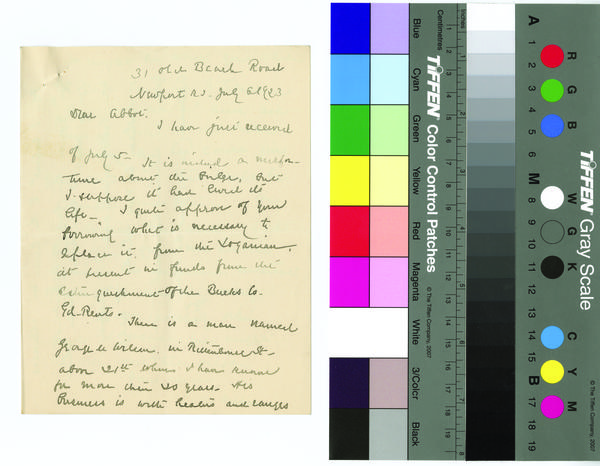 31 Old Beach Road
Newport R.I. July 6 1923
Dear Abbot.
I have just received
of July 5 - It is indeed a
time about the but
I suppose it had lived its
life - I quite approve of your
borrowing what is necessary to
replace it from the Loganian,
at present in funds from the
of the Bucks Co.
Gd-Rents.
There is a man named
George W. in Street
above 21st whom I have known
for more than 20 years. His
business is with heaters and ranges
Blue
Cyan
Green
Yellow
Red
Magenta
White
3/Color
Black
Centimetres
Inches
TIFFEN Color Control Patches
© The Tiffen Company, 2007
TIFFEN Gray Scale
© The Tiffen Company, 2007
A
1
2
3
4
5
6
M
8
9
10
11
12
13
14
15
B
17
18
19
R
G
B
W
G
K
C
Y
M